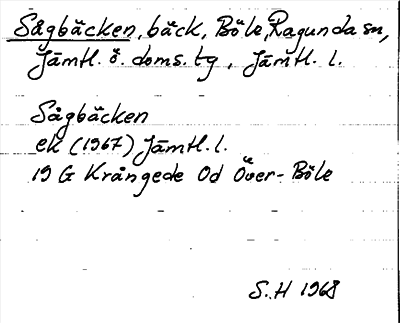 Sågbäcken, bäck, Böle, Ragunda sn,
Jämtl. ö. doms. tg, Jämtl. l.
Sågbäcken
ek (1967) Jämtl. l.
19 G Krångede Od Över-Böle
S.H 1968